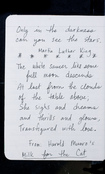 Only in the darkness
can you see the stars.
Martin Luther King
The white saucer like some
full moon descends
At last from the clouds
of the table above;
She sighs and dreams
and thrills and glows,
Transfigured with love.
From Harold Monro's
Milk for the Cat